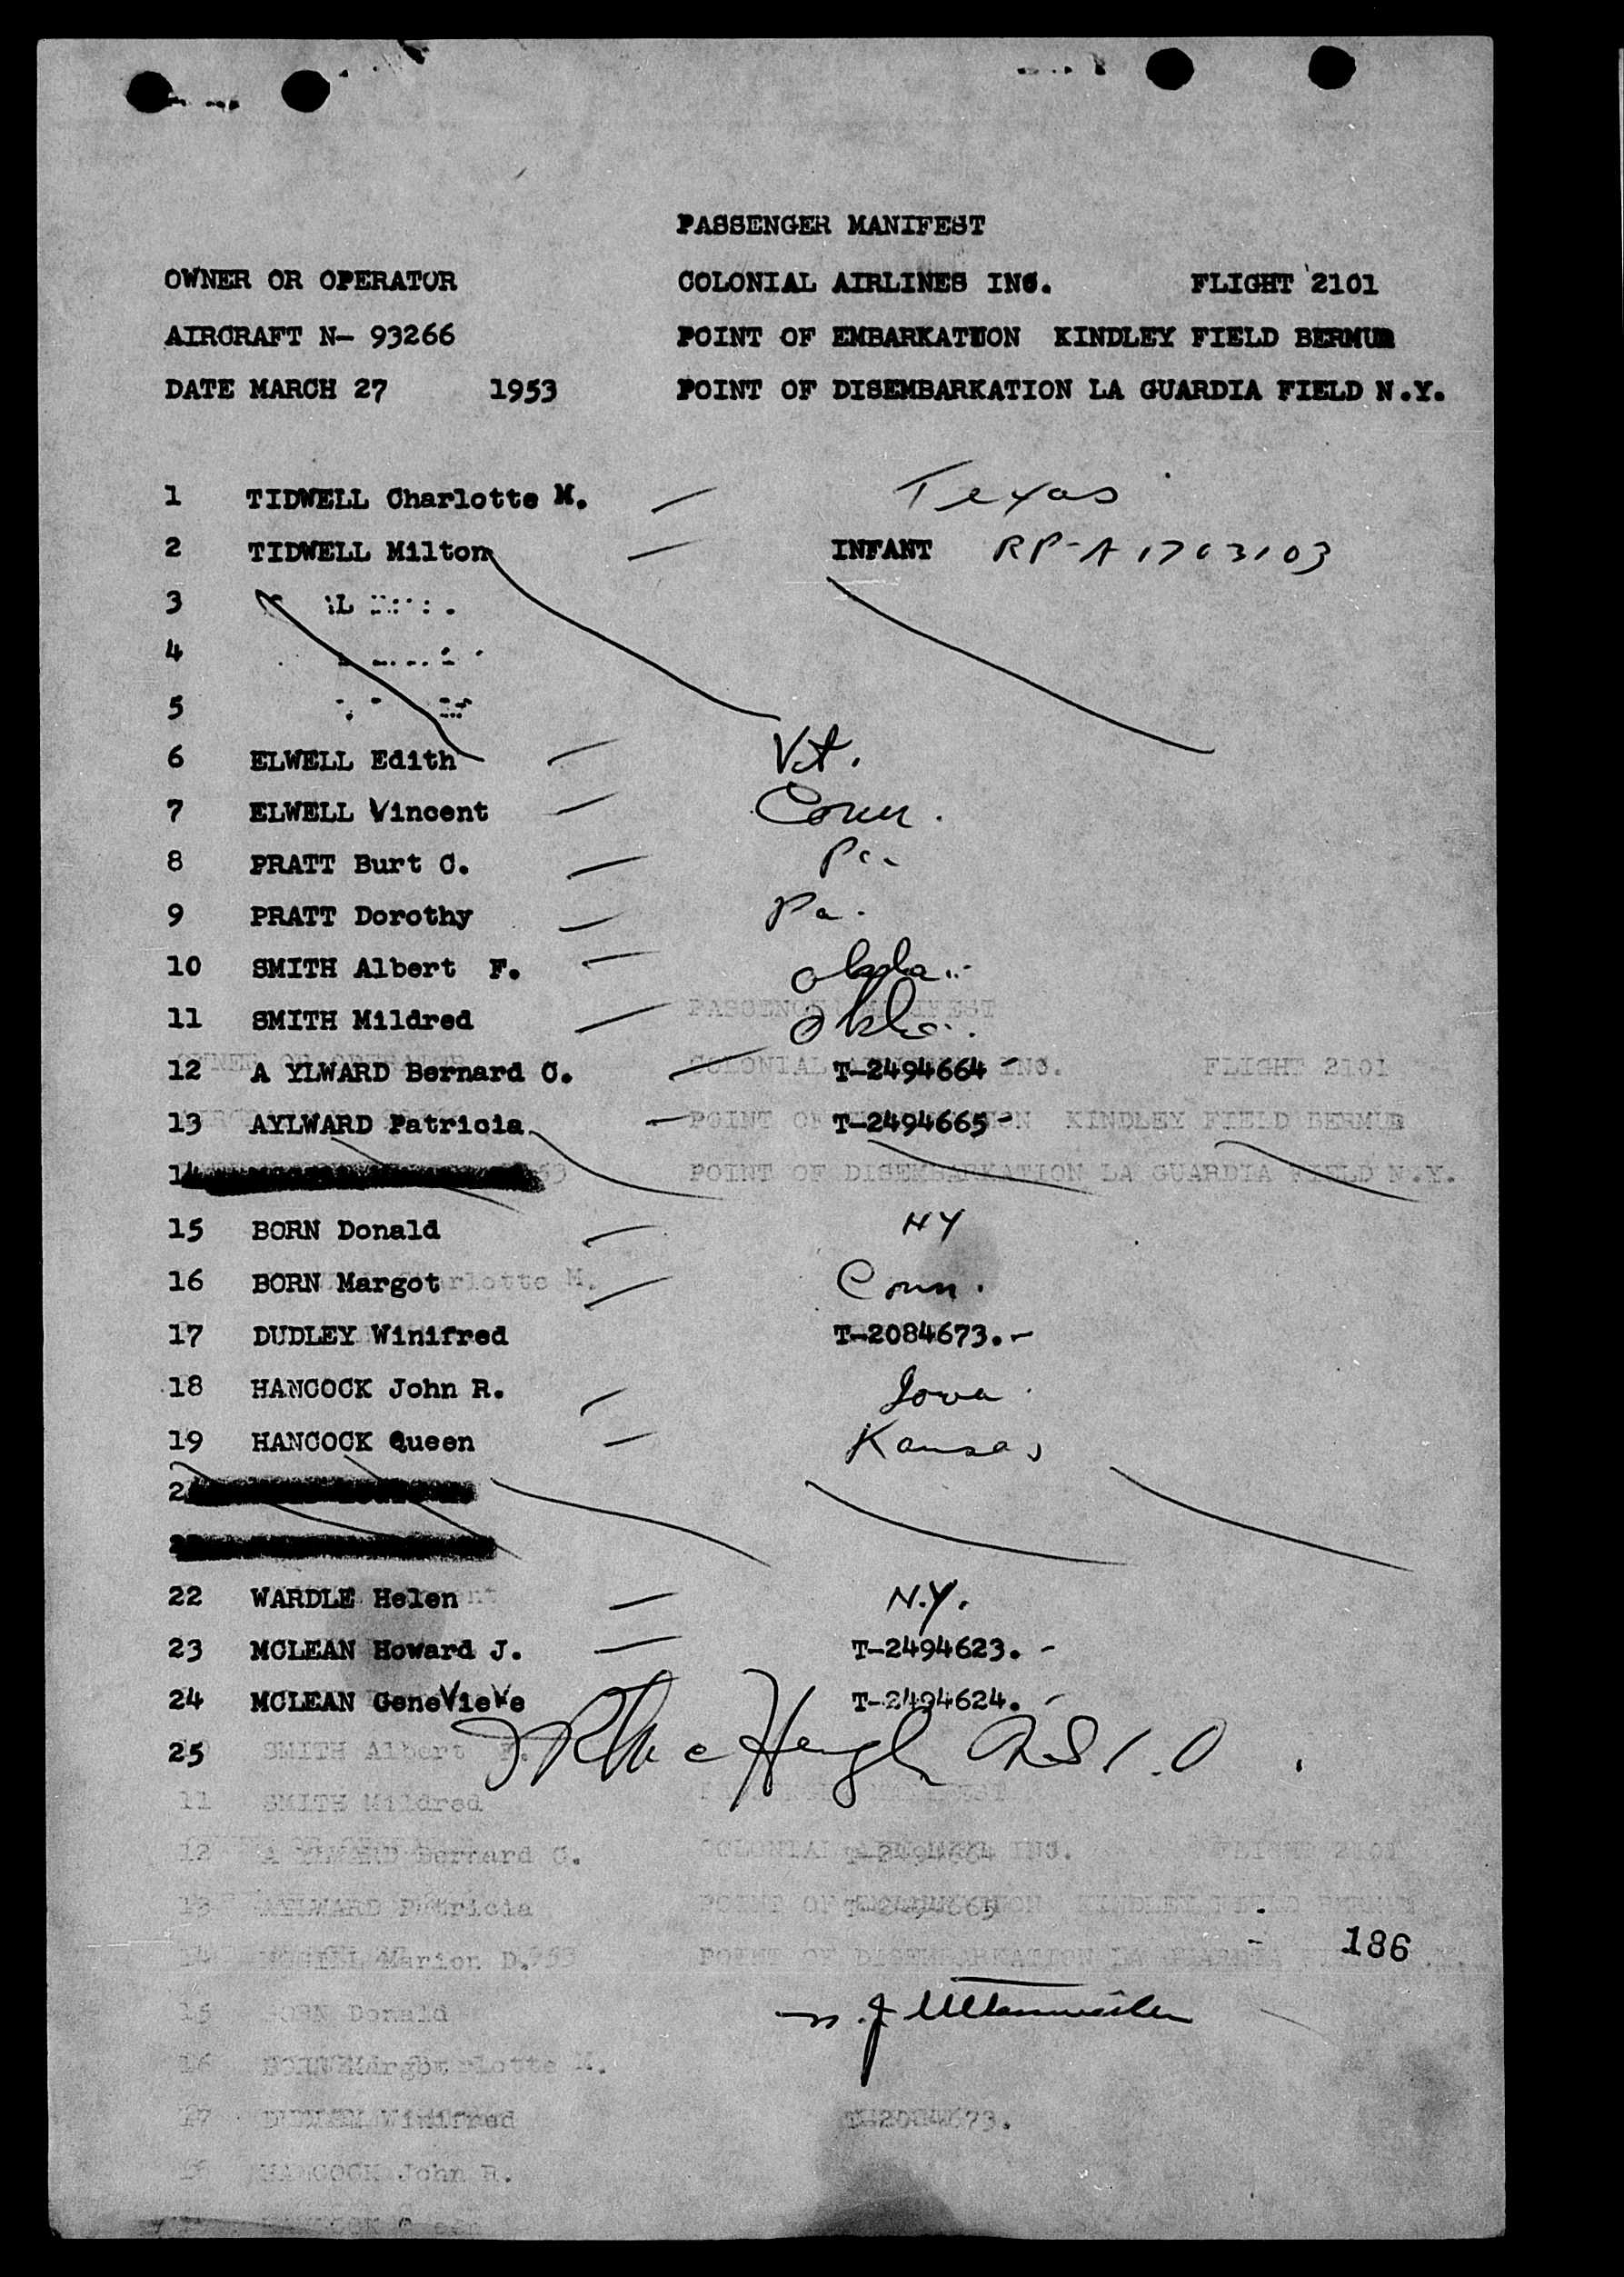 PASSENGER MANIFEST
OWNER OR OPERATOR COLONIAL AIRLINES INC. FLIGHT 2101
AIRCRAFT N- 93266 POINT OF EMBARKATION KINDLEY FIELD BERMUD
DATE MARCH 27 1953 POINT OF DISEMBARKATION LA GUARDIA FIELD N.Y.
1 TIDWELL Charlotte M. — Texas
2 TIDWELL Milton — INFANT RP-A1703103
3
4
5
6 ELWELL Edith — Vt.
7 ELWELL Vincent — Conn.
8 PRATT Burt C. — Pa.
9 PRATT Dorothy — Pa.
10 SMITH Albert F. — Okla.
11 SMITH Mildred — Okla.
12 A YLWARD Bernard C. — T-2494664 -
13 AYLWARD Patricia — T-2494665 -
14
15 BORN Donald — NY
16 BORN Margot — Conn.
17 DUDLEY Winifred T-2084673. -
18 HANCOCK John R. — Iowa
19 HANCOCK Queen — Kansas
22 WARDLE Helen — N.Y.
23 MCLEAN Howard J. — T-2494623. -
24 MCLEAN GeneVieVe T-2494624. -
25
186